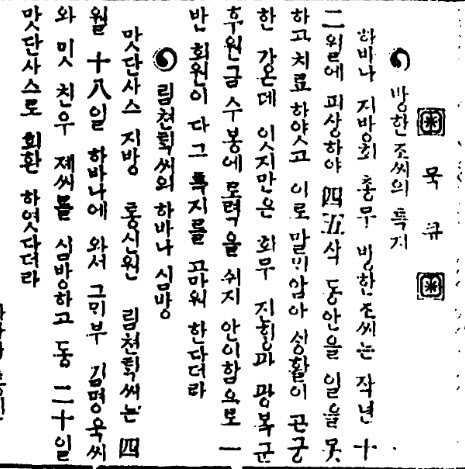 묵 큐
방한조씨의 특지
하바나 지방회 총무 방한조씨는 작년 十
二월에 피상하야 四五삭 동안을 일을 못
하고 치료하얏고 이로 말미암아 싱활이 곤궁
한 가온데 잇지만은 회무 진힝과 광복군
후원금 수봉에 로력을 쉬지 안이함으로 一
반 회원이 다 그 특지를 고마워 한다더라
림천틱씨의 하바나 심방
맛단사스 지방 통신원 림천틱씨는 四
월 十八일 하바나에 와서 그 미부 김명욱씨
와 밋 친우 졔씨를 심방하고 동 二十일
맛단사스로 회환 하엿다더라